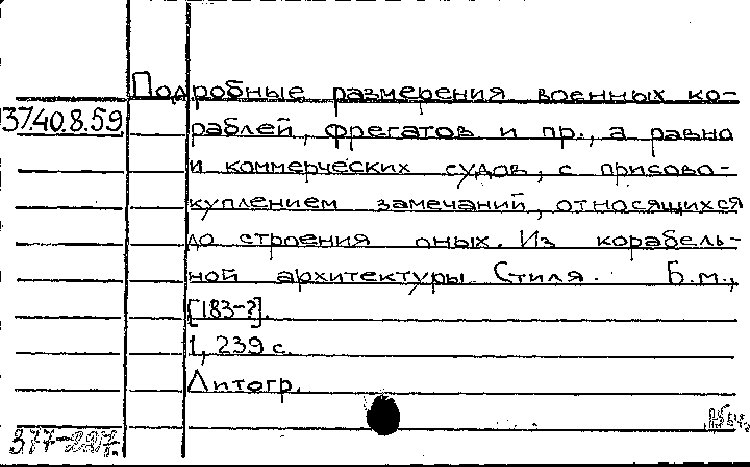 Подробные размерения военных ко-
37.40.8.59
раблей, фрегатов и пр., а равно
и коммерческих судов, с присово-
куплением замечаний, относящихся
до строения оных. Из корабель-
ной архитектуры Стиля. Б.м.,
[183-?].
1, 239 с.
Литогр.